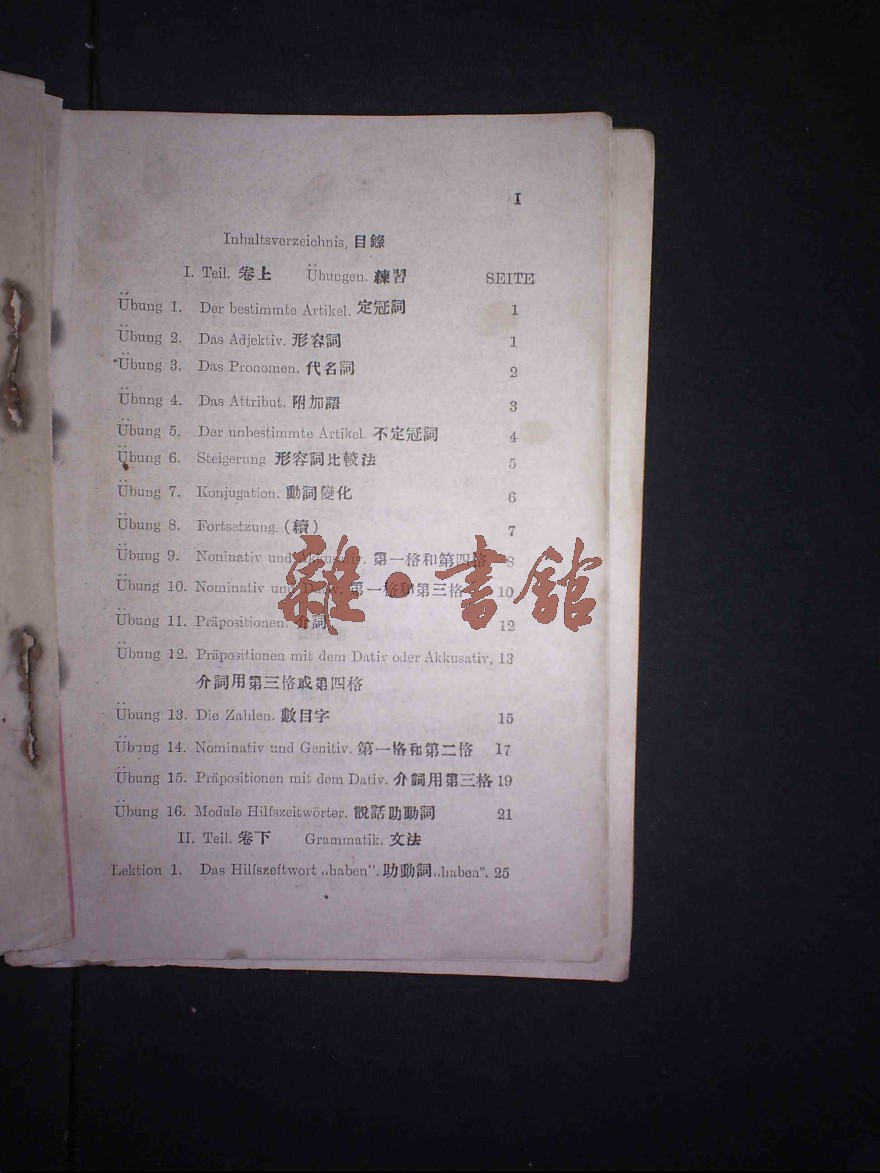 I
Inhaltsverzeichnis, 目錄
I. Teil. 卷上 Übungen. 練習 SEITE
Übung 1. Der bestimmte Artikel. 定冠詞 1
Übung 2. Das Adjektiv. 形容詞 1
Übung 3. Das Pronomen. 代名詞 2
Übung 4. Das Attribut. 附加語 3
Übung 5. Der unbestimmte Artikel. 不定冠詞 4
Übung 6. Steigerung 形容詞比較法 5
Übung 7. Konjugation. 動詞變化 6
Übung 8. Fortsetzung. (續) 7
Übung 9. Noninativ und Akkusativ. 第一格和第四格 8
Übung 10. Nominativ und Dativ. 第一格和第三格 10
Übung 11. Präpositionen. 介詞 12
Übung 12. Präpositionen mit dem Dativ oder Akkusativ, 13
介詞用第三格或第四格
Übung 13. Die Zahlen. 數目字 15
Übung 14. Nominativ und Genitiv. 第一格和第二格 17
Übung 15. Präpositionen mit dem Dativ. 介詞用第三格 19
Übung 16. Modale Hilfszeitwörter. 說話助動詞 21
II. Teil. 卷下 Grammatik. 文法
Lektion 1. Das Hilfszeitwort „haben". 助動詞„haben". 25
雜·書館